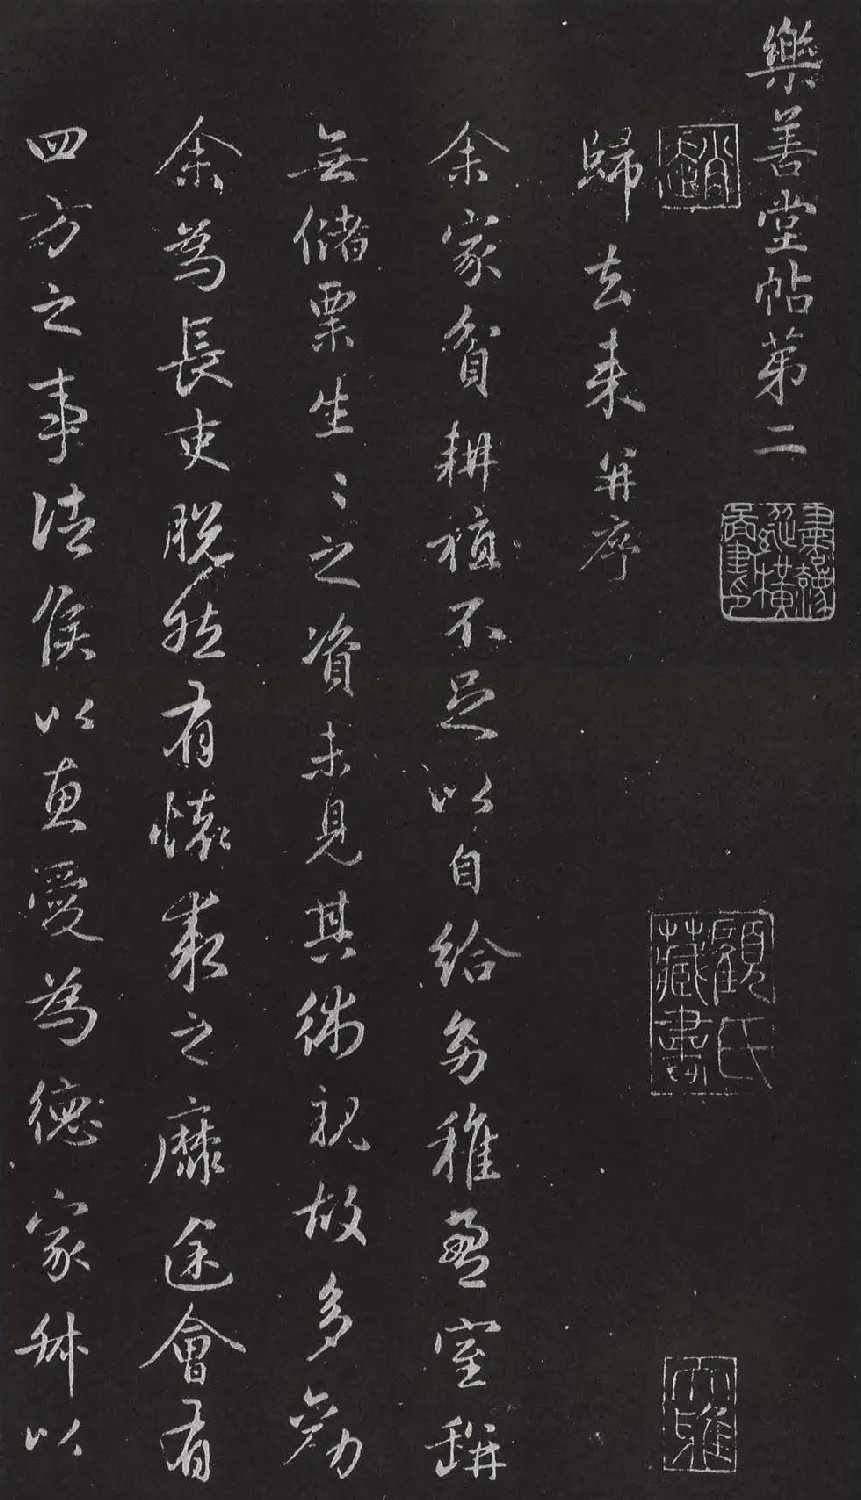 樂善堂帖第二
歸去来并序
余家貧耕植不足以自給㓜稚盈室缾
無儲粟生〻之資未見其術親故多勸
余為長吏脱然有懷求之靡途會有
四方之事諸侯以惠愛為德家叔以
顧氏藏書
大雅